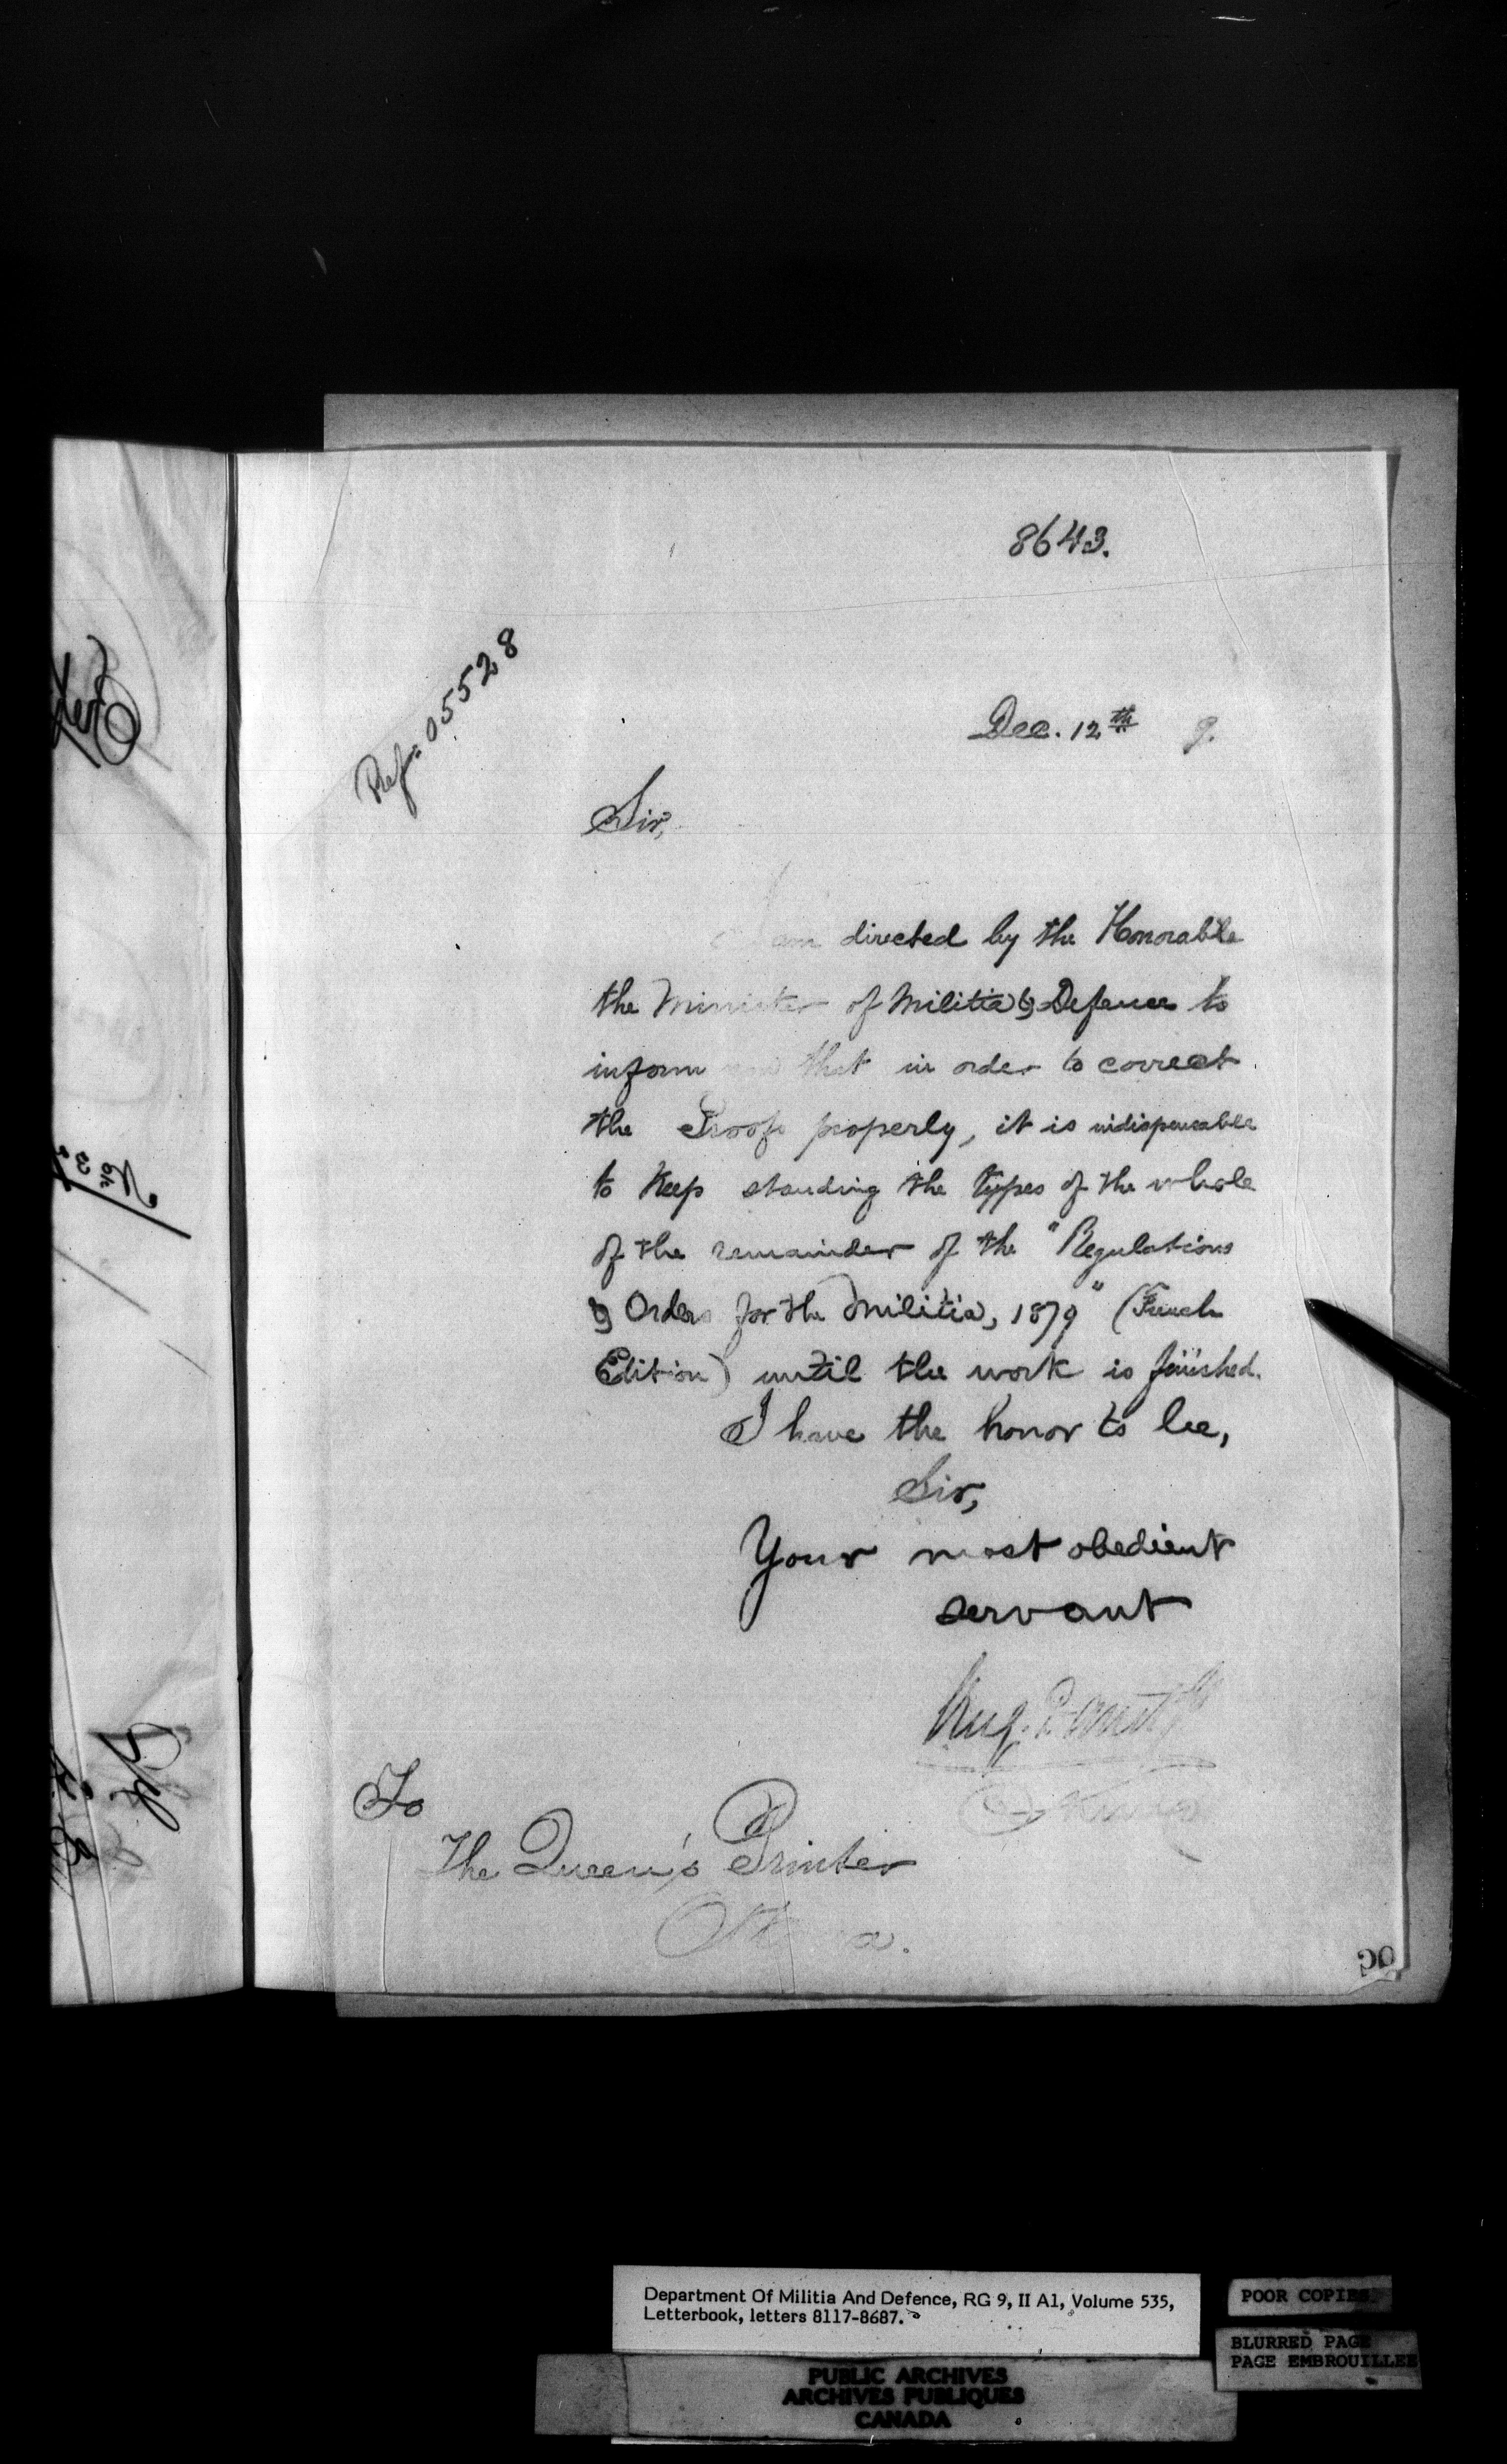 8643.
Ref: 05528
Dec. 12th 9.
Sir,
am directed by the Honorable
the Minister of Militia & Defence to
inform you that in order to correct
the Proofs properly, it is indispensable
to Keep standing the types of the whole
of the remainder of the "Regulations
& Orders for the Militia, 1879" (French
Edition) until the work is finished.
I have the honor to be,
Sir,
Your most obedient
servant
To
The Queen's Printer
Ottawa.
Department Of Militia And Defence, RG 9, II A1, Volume 535,
Letterbook, letters 8117-8687.
POOR COPIES
BLURRED PAGE
PAGE EMBROUILLEE
PUBLIC ARCHIVES
ARCHIVES PUBLIQUES
CANADA